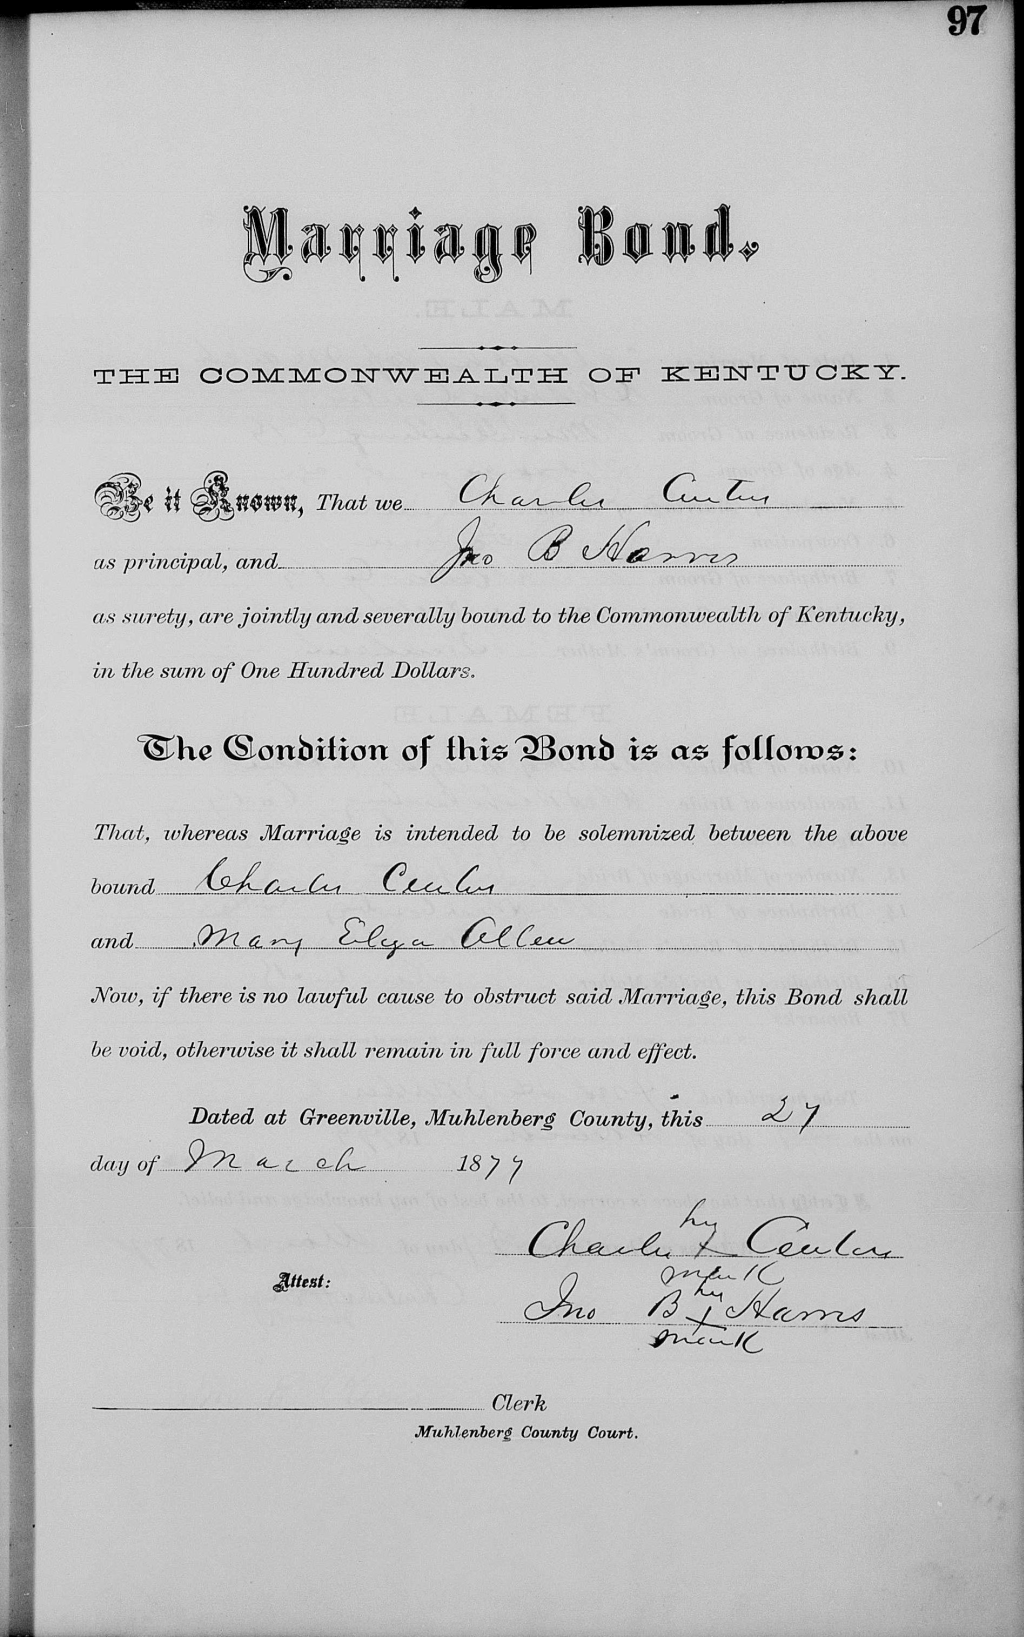 97
Marriage Bond.
THE COMMONWEALTH OF KENTUCKY.
Be it Known, That we Charles
as principal, and Jno B Harris
as surety, are jointly and severally bound to the Commonwealth of Kentucky,
in the sum of One Hundred Dollars.
The Condition of this Bond is as follows:
That, whereas Marriage is intended to be solemnized between the above
bound Charles
and Mary Allen
Now, if there is no lawful cause to obstruct said Marriage, this Bond shall
be void, otherwise it shall remain in full force and effect.
Dated at Greenville, Muhlenberg County, this 27
day of March 1877
his
Charles x
mark
Attest:
his
Jno B x Harris
mark
Clerk
Muhlenberg County Court.